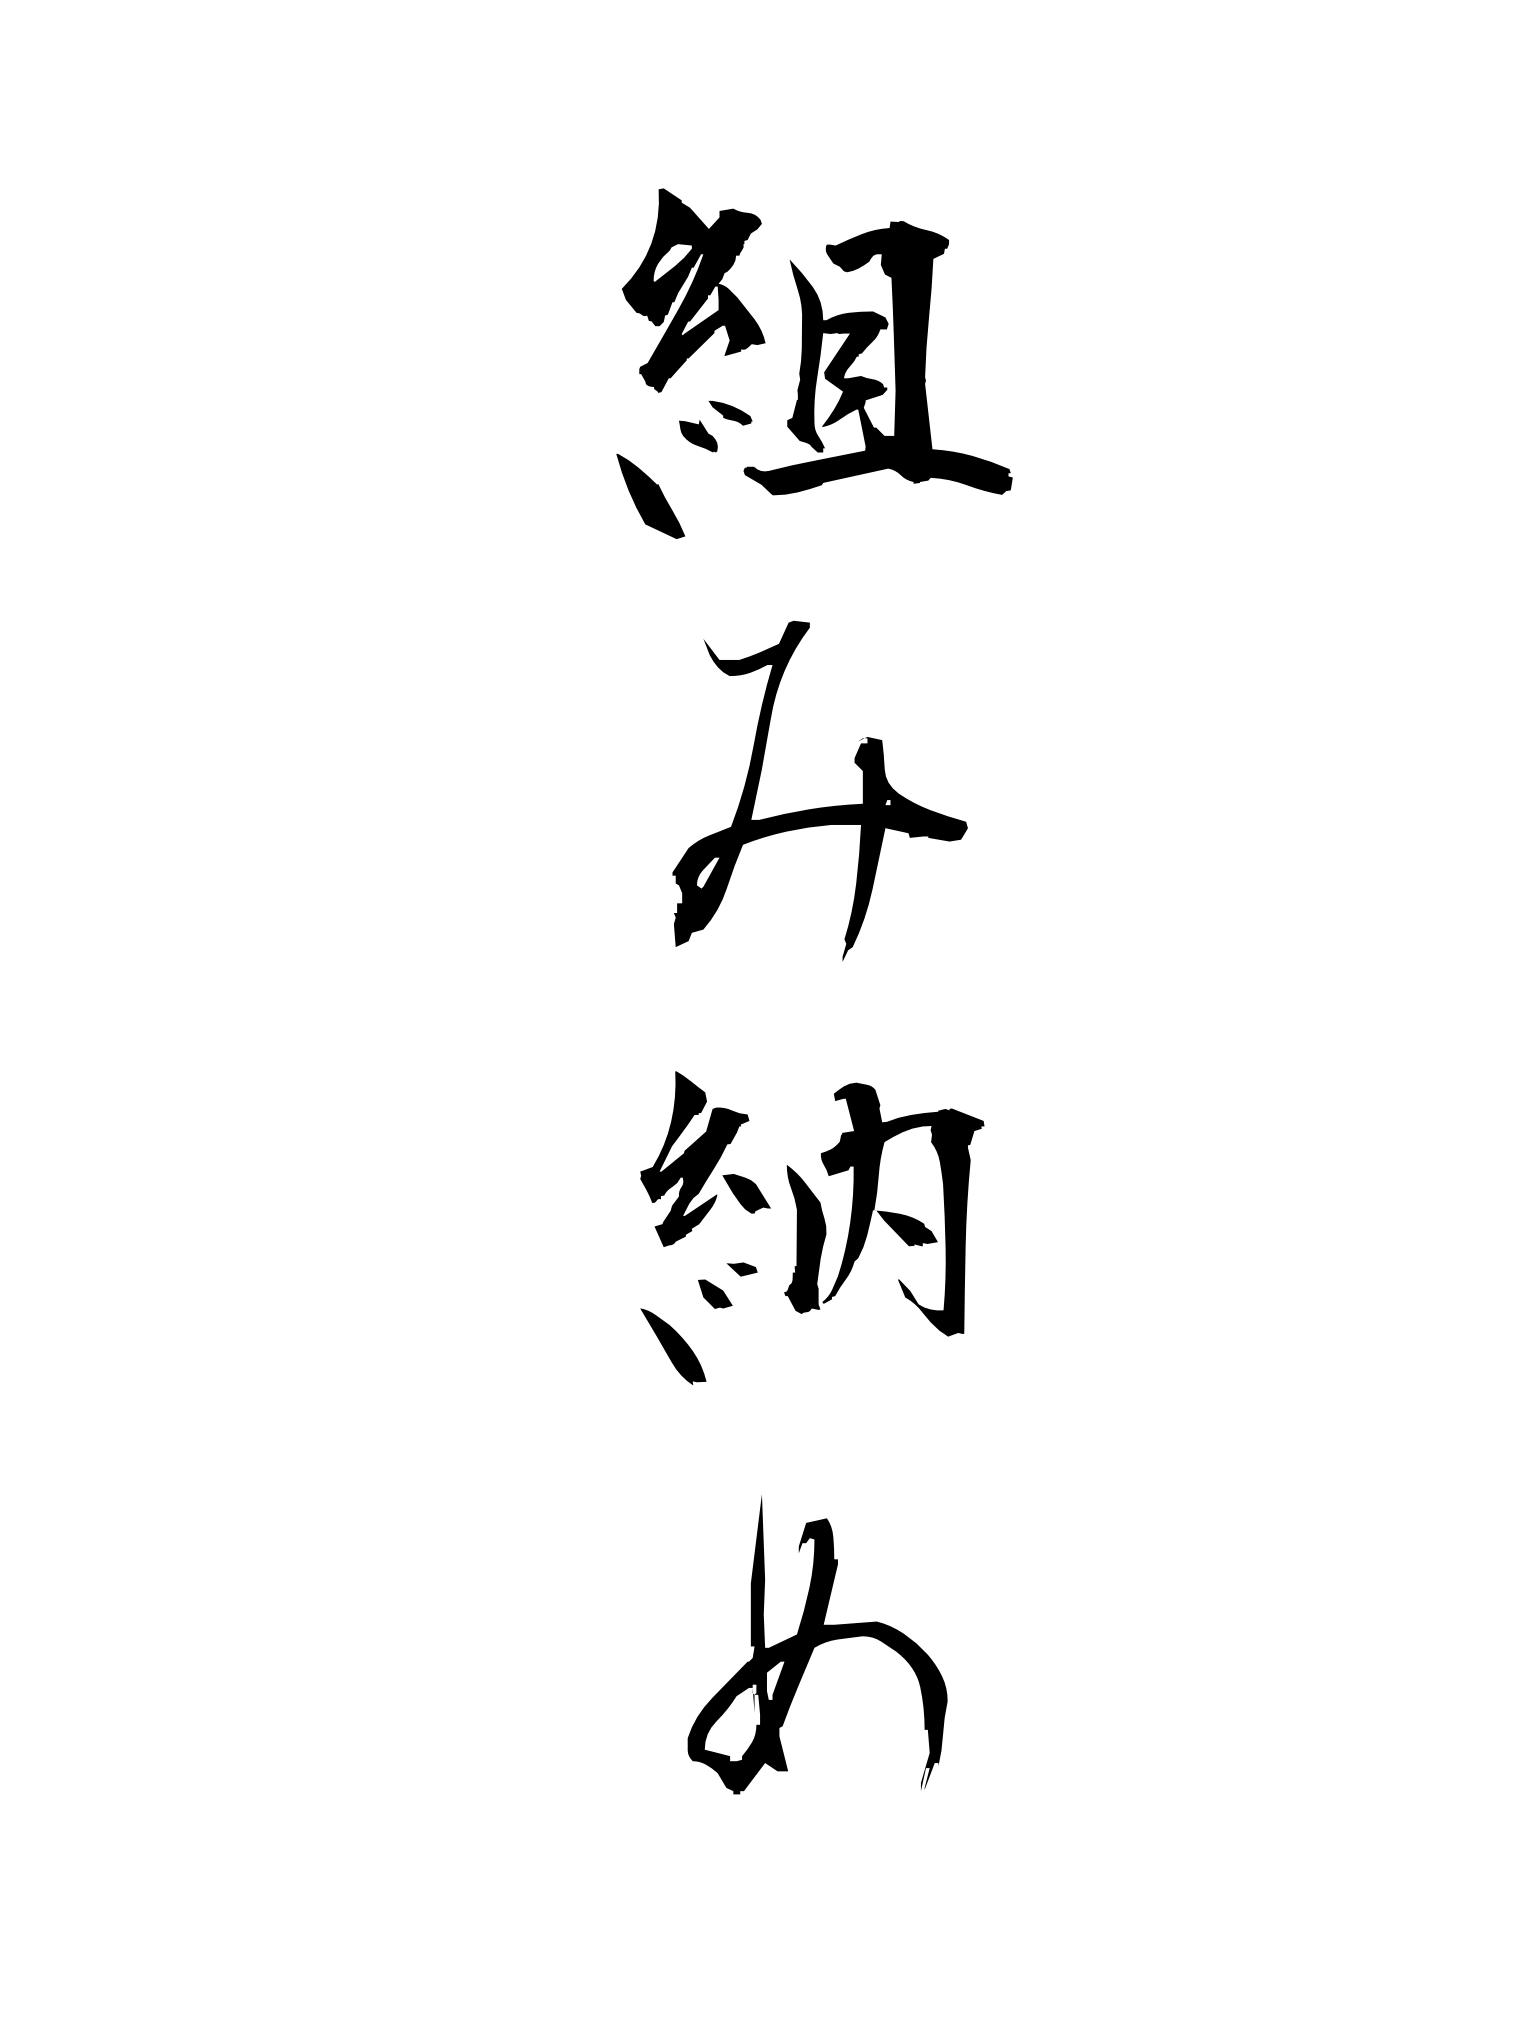 組み納め